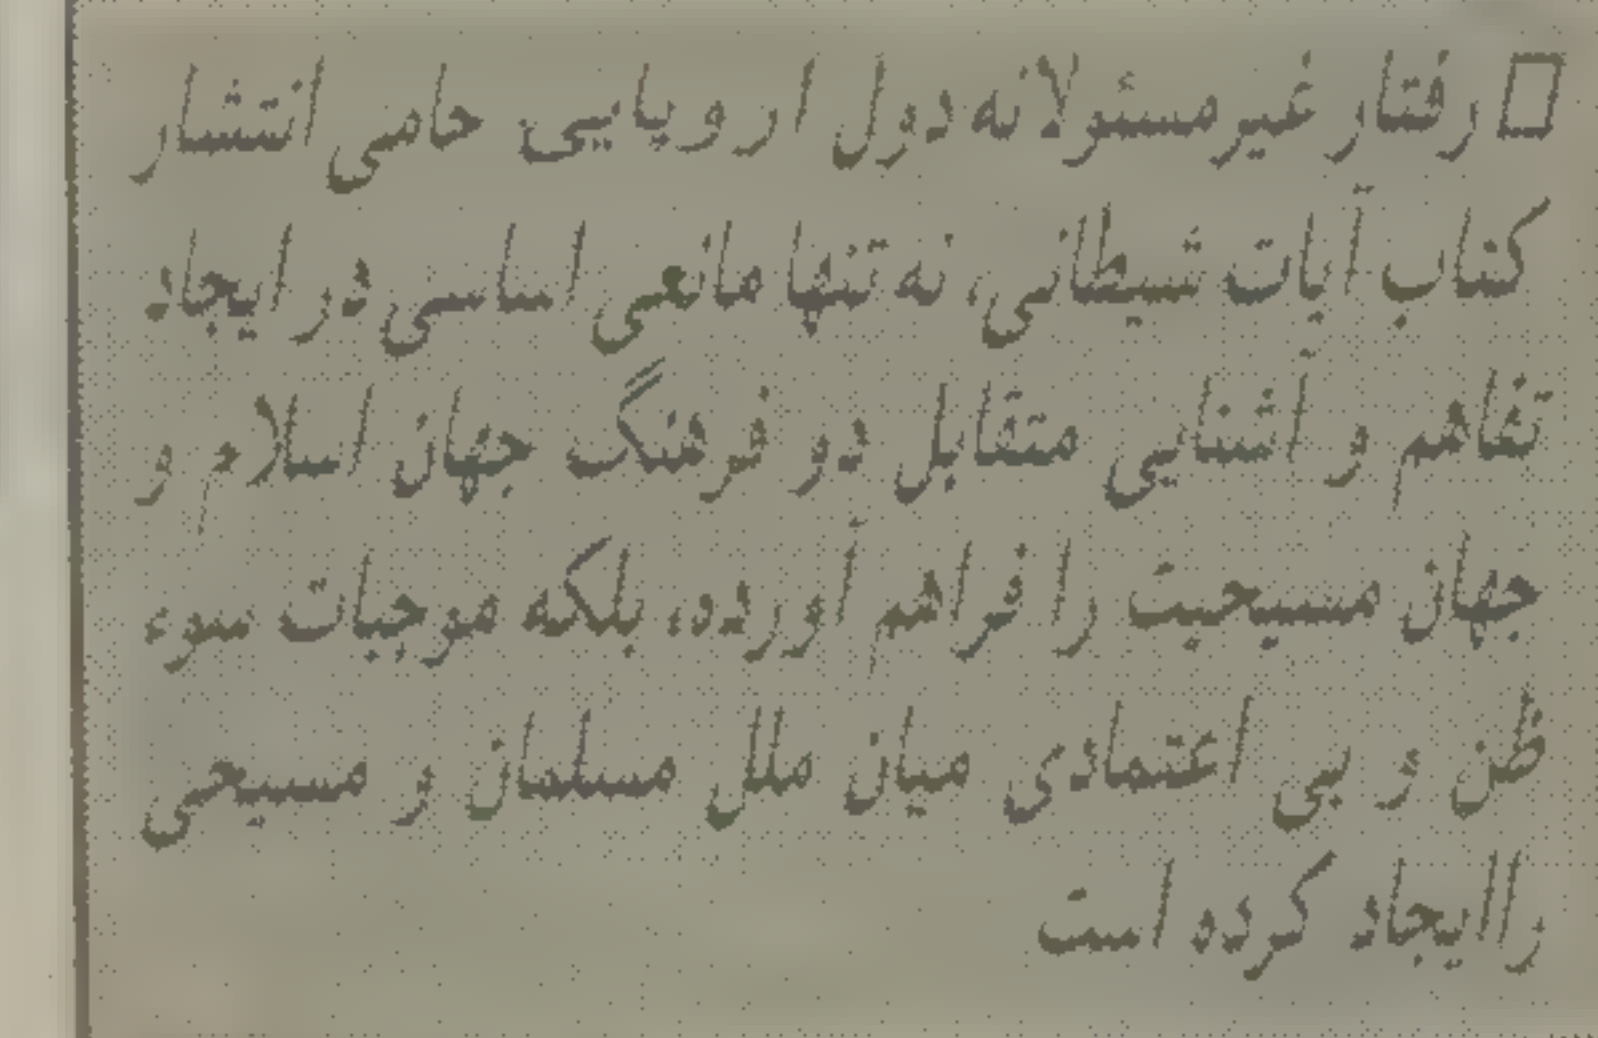 □ رفتار غیرمسئولانه دول اروپایی حامی انتشار
کتاب آیات شیطانی، نه تنها مانعی اساسی در ایجاد
تفاهم و آشنایی متقابل دو فرهنگ جهان اسلام و
جهان مسیحیت را فراهم آورده، بلکه موجبات سوء
ظن و بی اعتمادی میان ملل مسلمان و مسیحی
را ایجاد کرده است